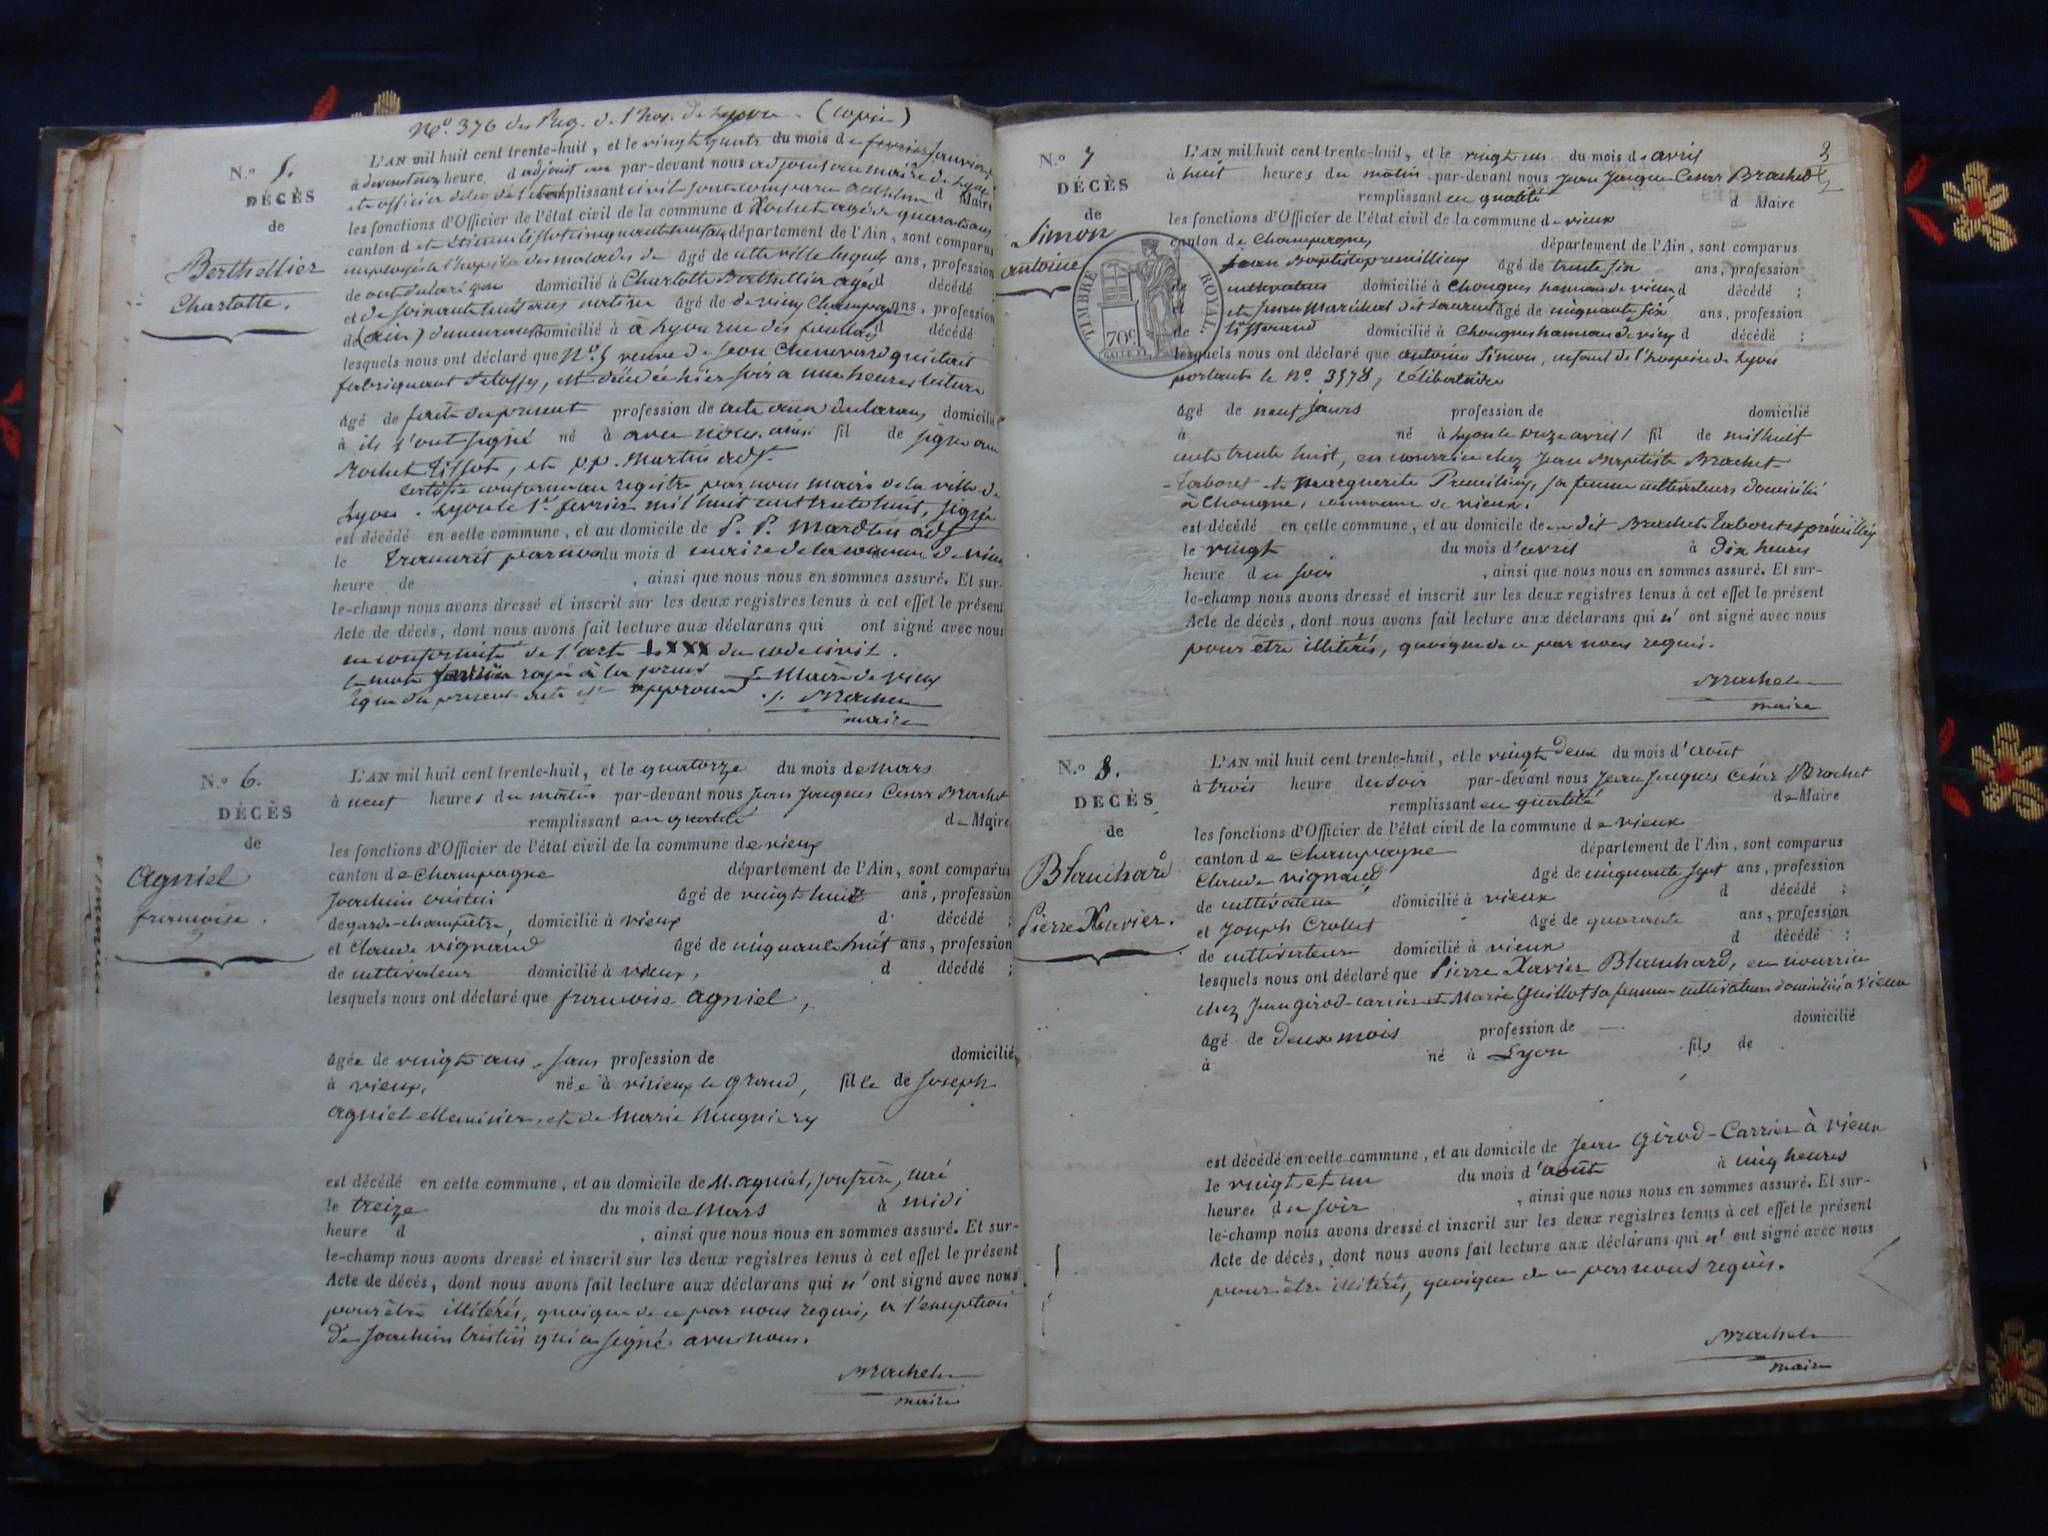 No. 376 des Reg. de l'hop. de Lyon. (copie)
N.º 5.
DÉCÈS
de
Berthellier
Charlotte.
L'AN mil huit cent trente-huit, et le vingt quatre du mois de fevrier janvier
à heure, d par-devant nous adjoint au maire de Lyon
et officier delegué de l'état remplissant civil sont comparu d Maire
les fonctions d'Officier de l'état civil de la commune d Rochet agé de quarante ans
canton d et Etienne tissot cinquante département de l'Ain, sont comparus
employés à l'hopital des malades de âgé de cette ville lesquels ans, profession
de ont déclaré que domicilié à Charlotte Berthellier agée d décédé ;
et de soixante huit ans native âgé de de vieux Champagne ans, profession
de (ain) demeurant domicilié à à Lyon rue des d décédé ;
lesquels nous ont déclaré que No. 5 veuve de Jean Chenevard qui était
fabriquant d'étoffes, est décédée hier soir a une heure lecture
âgé de faite du present profession de acte aux declarans, domicilié
à ils l'ont signé né à avec nous. ainsi fil de signé au
Rochet Tissot, et p.p. Martin adjt.
Certifié conforme au registre par nous maire de la ville de
Lyon. Lyon le 1er fevrier mil huit cent trente huit, signé
est décédé en celle commune, et au domicile de P. P. Mardtin adjt
le Transcrit par nous du mois d maire de la commune de vieux
heure de , ainsi que nous nous en sommes assuré. Et sur-
le-champ nous avons dressé et inscrit sur les deux registres tenus à cet effet le présent
Acte de décès, dont nous avons fait lecture aux déclarans qui ont signé avec nous
en conformité de l'art LXXX du code civil.
le mot fevrier rayé à la premiere Le Maire de vieux
ligne du present acte est approuvé. Brachet
maire
N.º 6.
DÉCÈS
de
Agniel
françoise.
L'AN mil huit cent trente-huit, et le quatorze du mois de Mars
à neuf heures du matin par-devant nous Jean Jacques Cesar Brachet
remplissant en qualité de Maire
les fonctions d'Officier de l'état civil de la commune de vieux
canton de Champagne département de l'Ain, sont comparus
Joachim Cristin âgé de vingt huit ans, profession
de garde-champêtre, domicilié à vieux d décédé ;
et Claude vignaud âgé de cinquante huit ans, profession
de cultivateur domicilié à vieux, d décédé ;
lesquels nous ont déclaré que françoise Agniel,
âgée de vingt ans. sans profession de domicilié
à vieux, née à virieux le grand, fille de Joseph
Agniel Menuisier, et de Marie Mugniery
est décédé en celle commune, et au domicile de M. agniel, son frère, curé
le treize du mois de Mars à midi
heure d , ainsi que nous nous en sommes assuré. Et sur-
le-champ nous avons dressé et inscrit sur les deux registres tenus à cet effet le présent
Acte de décès, dont nous avons fait lecture aux déclarans qui n'ont signé avec nous
pour être illitérés, quoique de ce par nous requis, à l'exception
de Joachim Cristin qui a signé avec nous.
Brachet
maire
N.º 7
DÉCÈS
de
Simon
antoine
TIMBRE ROYAL.
70c.
L'AN mil huit cent trente-huit, et le vingt un du mois d'avril
à huit heures du matin par-devant nous Jean Jacques Cesar Brachet
remplissant en qualité d Maire
les fonctions d'Officier de l'état civil de la commune de vieux
canton de Champagne département de l'Ain, sont comparus
Jean Baptiste premillieux âgé de trente six ans, profession
de cultivateur domicilié à Chongnes hameau de vieux d décédé ;
et Jean Maréchal dit Laurent âgé de cinquante six ans, profession
de tisserand domicilié à Chongnes hameau de vieux d décédé ;
lesquels nous ont déclaré que antoine Simon, enfant de l'hospice de Lyon
portant le No. 3578, célibataire
âgé de neuf jours profession de domicilié
à né à Lyon le onze avril fil de mil huit
cent trente huit, en nourrice chez Jean Baptiste Brachet
-Taboret et Marguerite Premillieux, sa femme cultivateurs domicilié
à Chongne, commune de vieux.
est décédé en celle commune, et au domicile de dit Brachet-Taboret et prémillieux
le vingt du mois d'avril à dix heures
heure du soir , ainsi que nous nous en sommes assuré. Et sur-
le-champ nous avons dressé et inscrit sur les deux registres tenus à cet effet le présent
Acte de décès, dont nous avons fait lecture aux déclarans qui n'ont signé avec nous
pour être illitérés, quoique de ce par nous requis.
Brachet
maire
N.º 8.
DÉCÈS
de
Blanchard
Pierre Xavier.
L'AN mil huit cent trente-huit, et le vingt deux du mois d'août
à trois heure du soir par-devant nous Jean Jacques Cesar Brachet
remplissant en qualité de Maire
les fonctions d'Officier de l'état civil de la commune de vieux
canton de Champagne département de l'Ain, sont comparus
Claude vignaud âgé de cinquante sept ans, profession
de cultivateur domicilié à vieux d décédé ;
et Joseph Crollet âgé de quarante ans, profession
de cultivateur domicilié à vieux d décédé ;
lesquels nous ont déclaré que Pierre Xavier Blanchard, en nourrice
chez Jean Girod-carrier et Marie Guillot sa femme cultivateurs domiciliés à vieux
âgé de deux mois profession de — domicilié
à né à Lyon fils de
est décédé en celle commune, et au domicile de Jean Girod-Carrier à vieux
le vingt et un du mois d'août à cinq heures
heures du soir , ainsi que nous nous en sommes assuré. Et sur-
le-champ nous avons dressé et inscrit sur les deux registres tenus à cet effet le présent
Acte de décès, dont nous avons fait lecture aux déclarans qui n'ont signé avec nous
pour être illitérés, quoique de ce par nous requis.
Brachet
maire